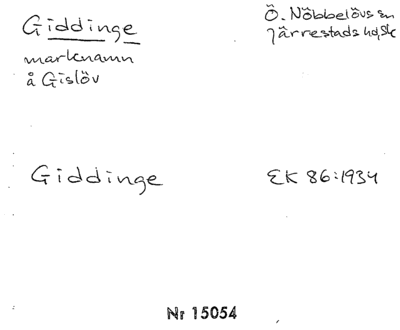 Giddinge
Ö. Nöbbelövs sn
Järrestads hd, Sk
marknamn
å Gislöv
Giddinge
EK 86:1934
Nr 15054